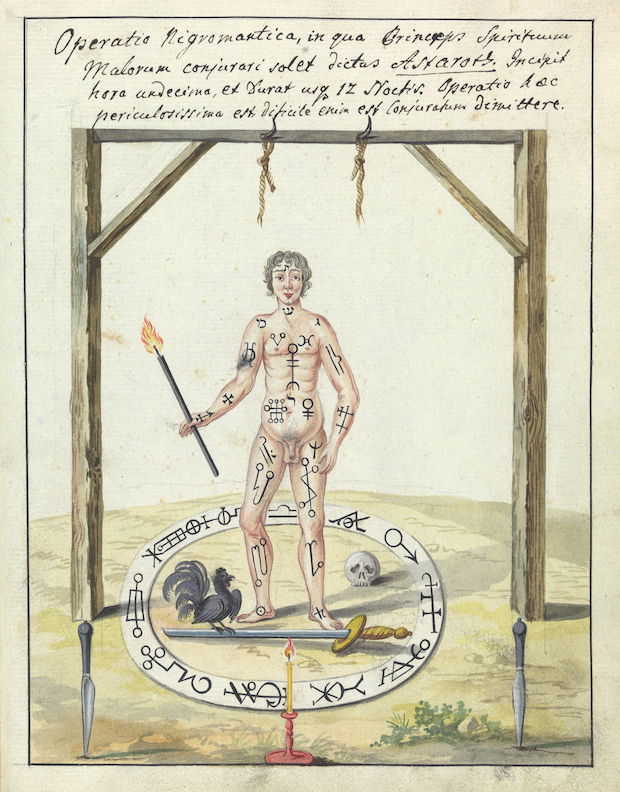 Operatio Nigromantica, in qua Princeps Spirituum
Malorum conjurari solet dictus Astaroth. Incipit
hora undecima, et Durat usq 12 Noctis. Operatio haec
periculosissima est dificile enim est Conjuratum dimittere.